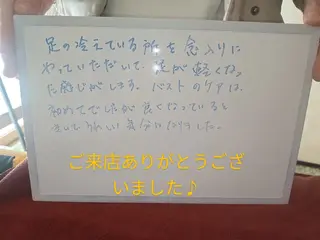 足の冷えている所を念入りに
やっていただいて、足が軽くなっ
た感じがしてる。バストのケアは、
初めてでしたが良くなっていると
うれしい気分になりました。
ご来店ありがとうござ
いました♪